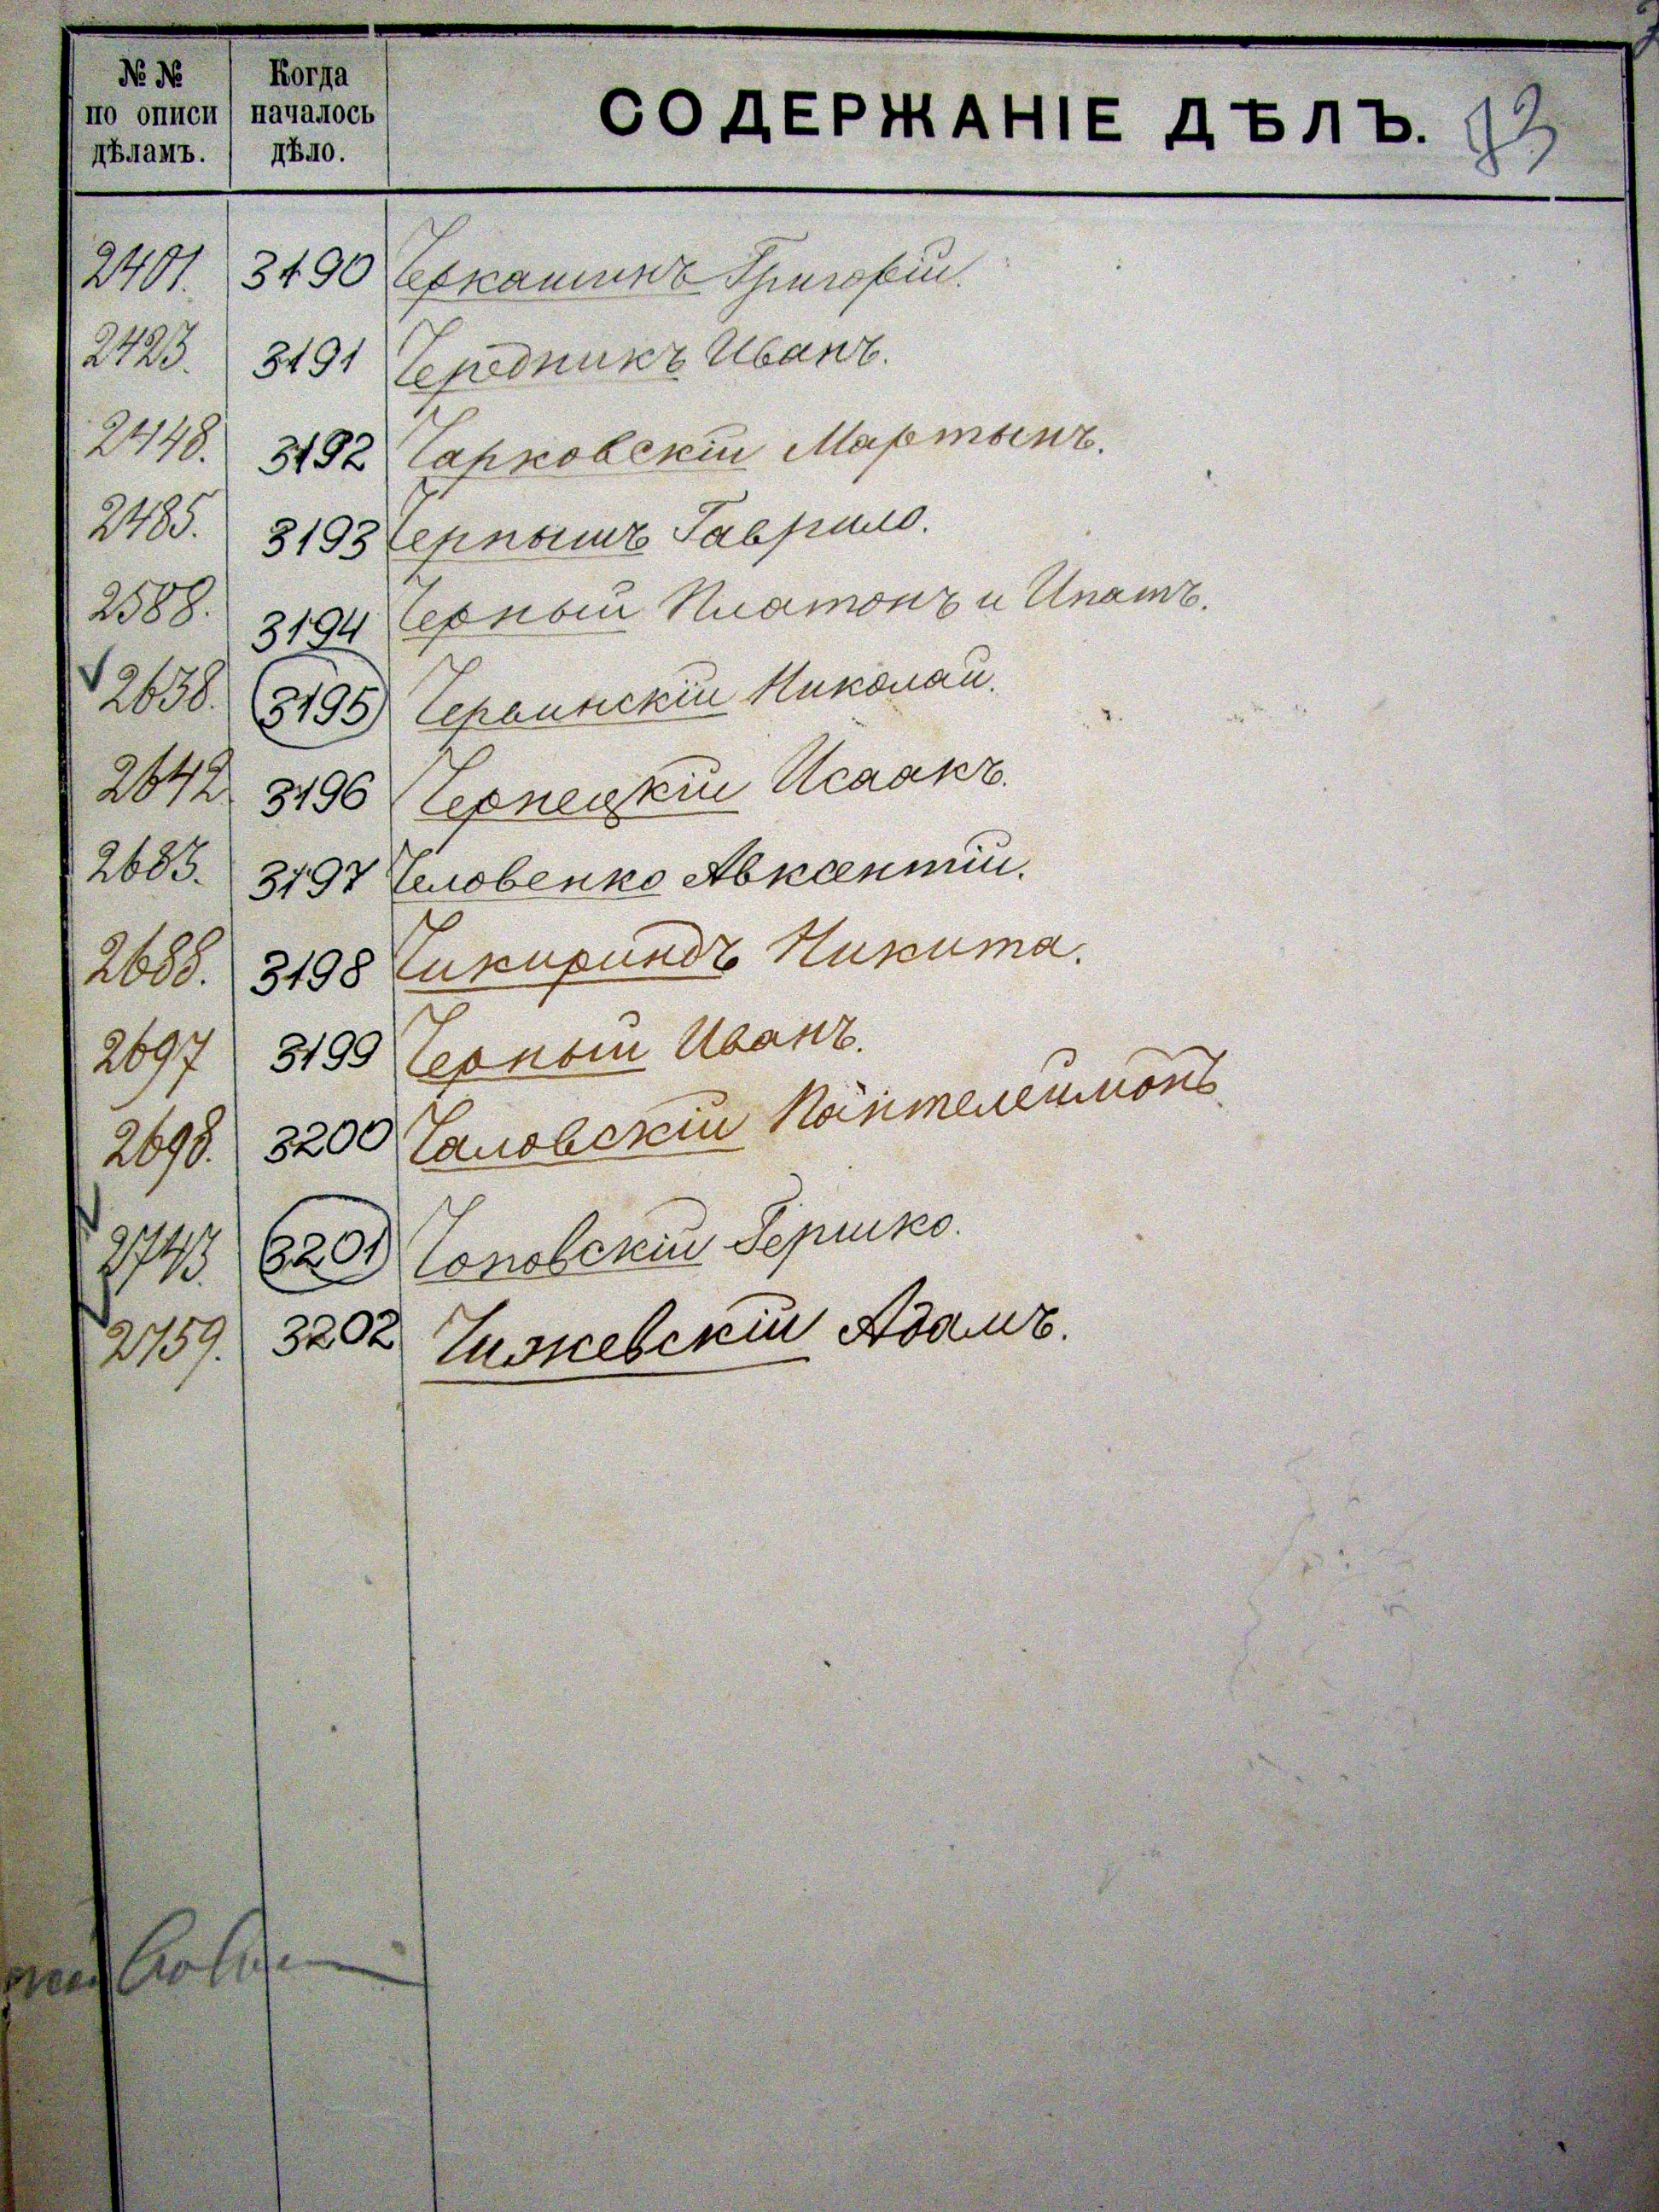 № № по описи дѣламъ. Когда началось дѣло. СОДЕРЖАНІЕ ДѢЛЪ. 83
2401. 3190 Черкашинъ Григорій.
2423. 3191 Чередникъ Иванъ.
2448. 3192 Чарковскій Мартынъ.
2485. 3193 Чернышъ Гаврило.
2588. 3194 Черный Платонъ и Ипатъ.
2638. 3195 Николай.
2642 3196 Чернецкій Исаакъ.
2683. 3197 Человенко Авксентій.
2688. 3198 Чикириндъ Никита.
2697 3199 Черный Иванъ.
2698. 3200 Чаловскій Пантелеимонъ
2743. 3201 Чоповскій Гершко.
2759. 3202 Чижевскій Адамъ.